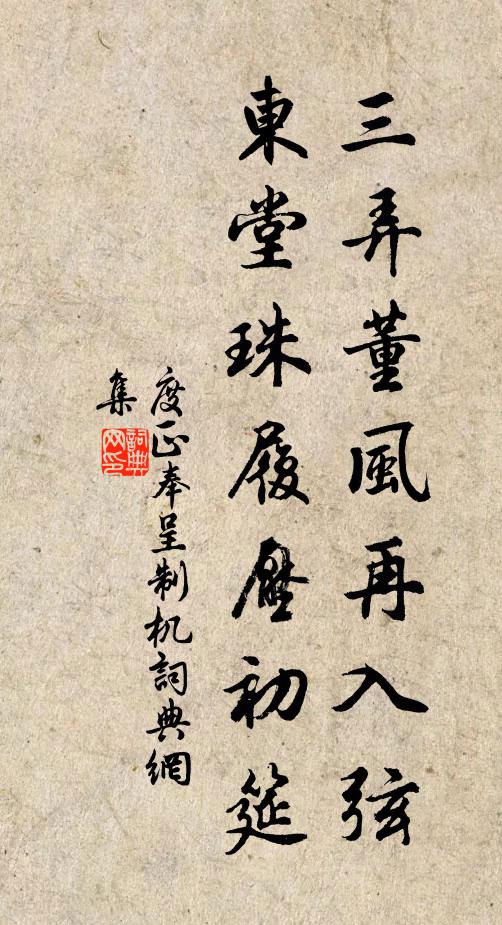 三弄董風再入弦
東堂珠履壓初筵
度正奉呈制机詞典網
集
詞典網印